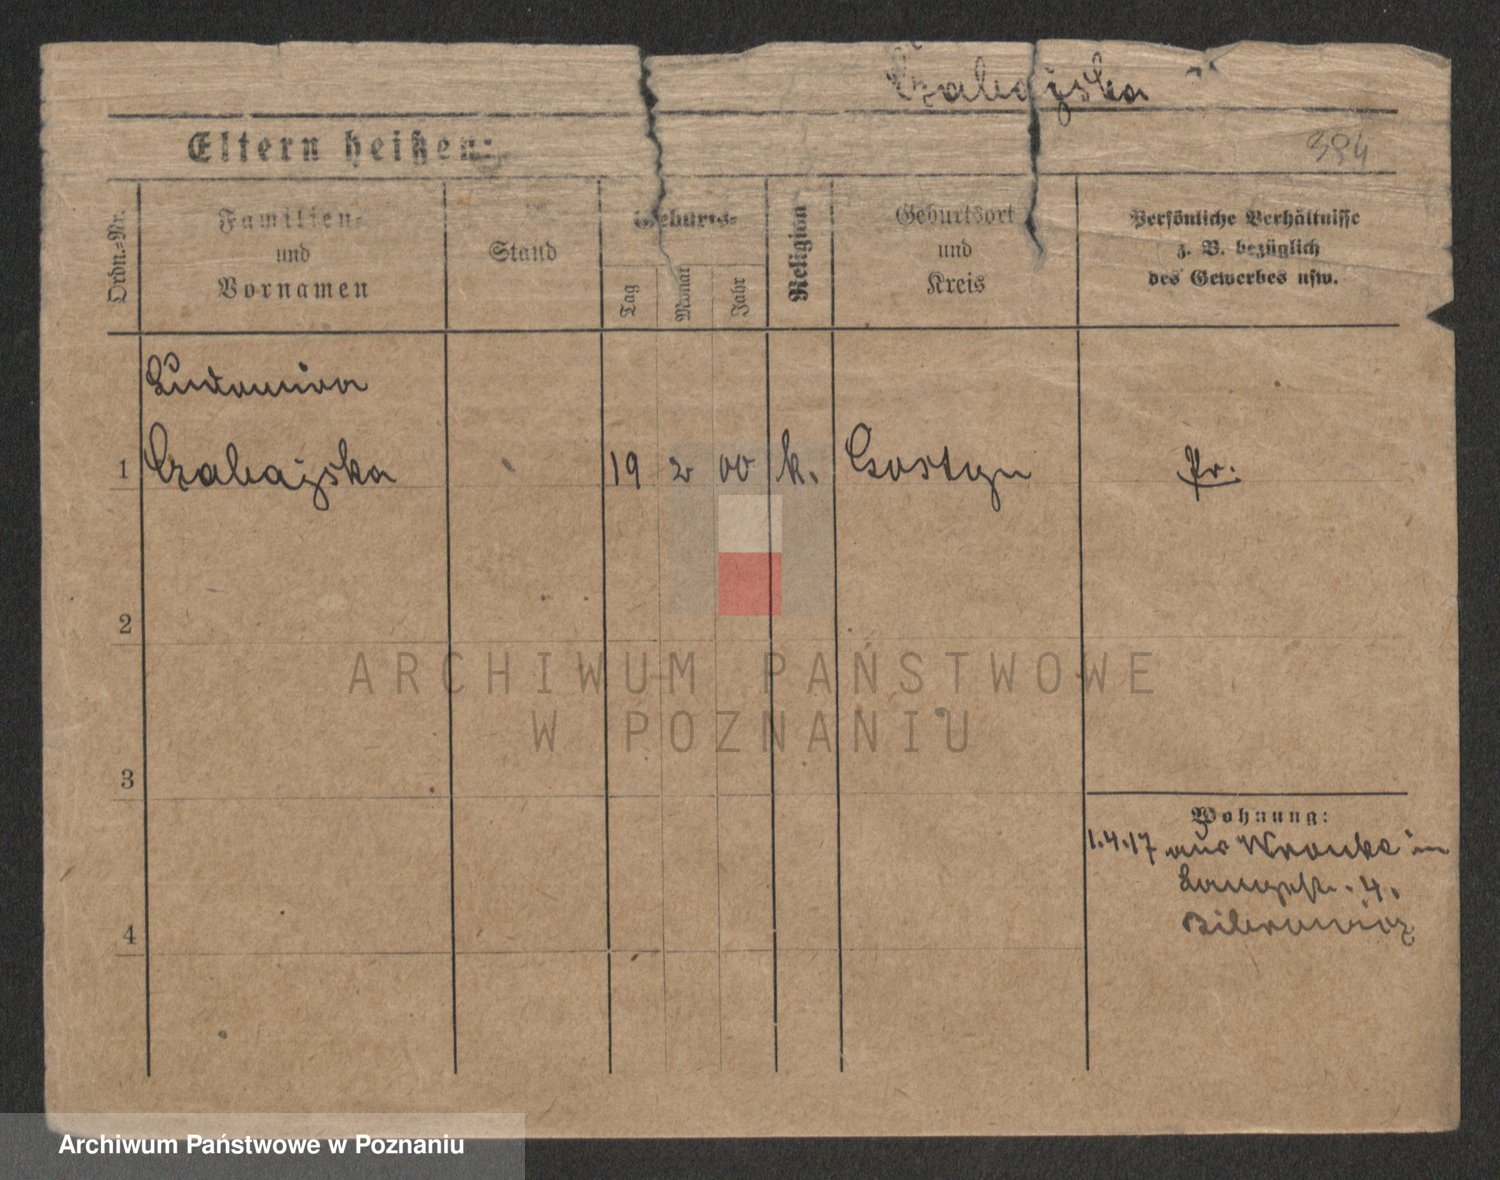 Czabajska
Eltern heißen:
384
Ordn.=Nr.
Familien=
und
Vornamen
Stand
Geburts=
Tag
Monat
Jahr
Religion
Geburtsort
und
Kreis
Persönliche Verhältnisse
z. B. bezüglich
des Gewerbes usw.
Ludomira
1 Czabajska 19 2 00 k. Gostyn Pr.
2
3
Wohnung:
1.4.17 aus Wronke in
Langestr. 4.
4
ARCHIWUM PAŃSTWOWE
W POZNANIU
Archiwum Państwowe w Poznaniu